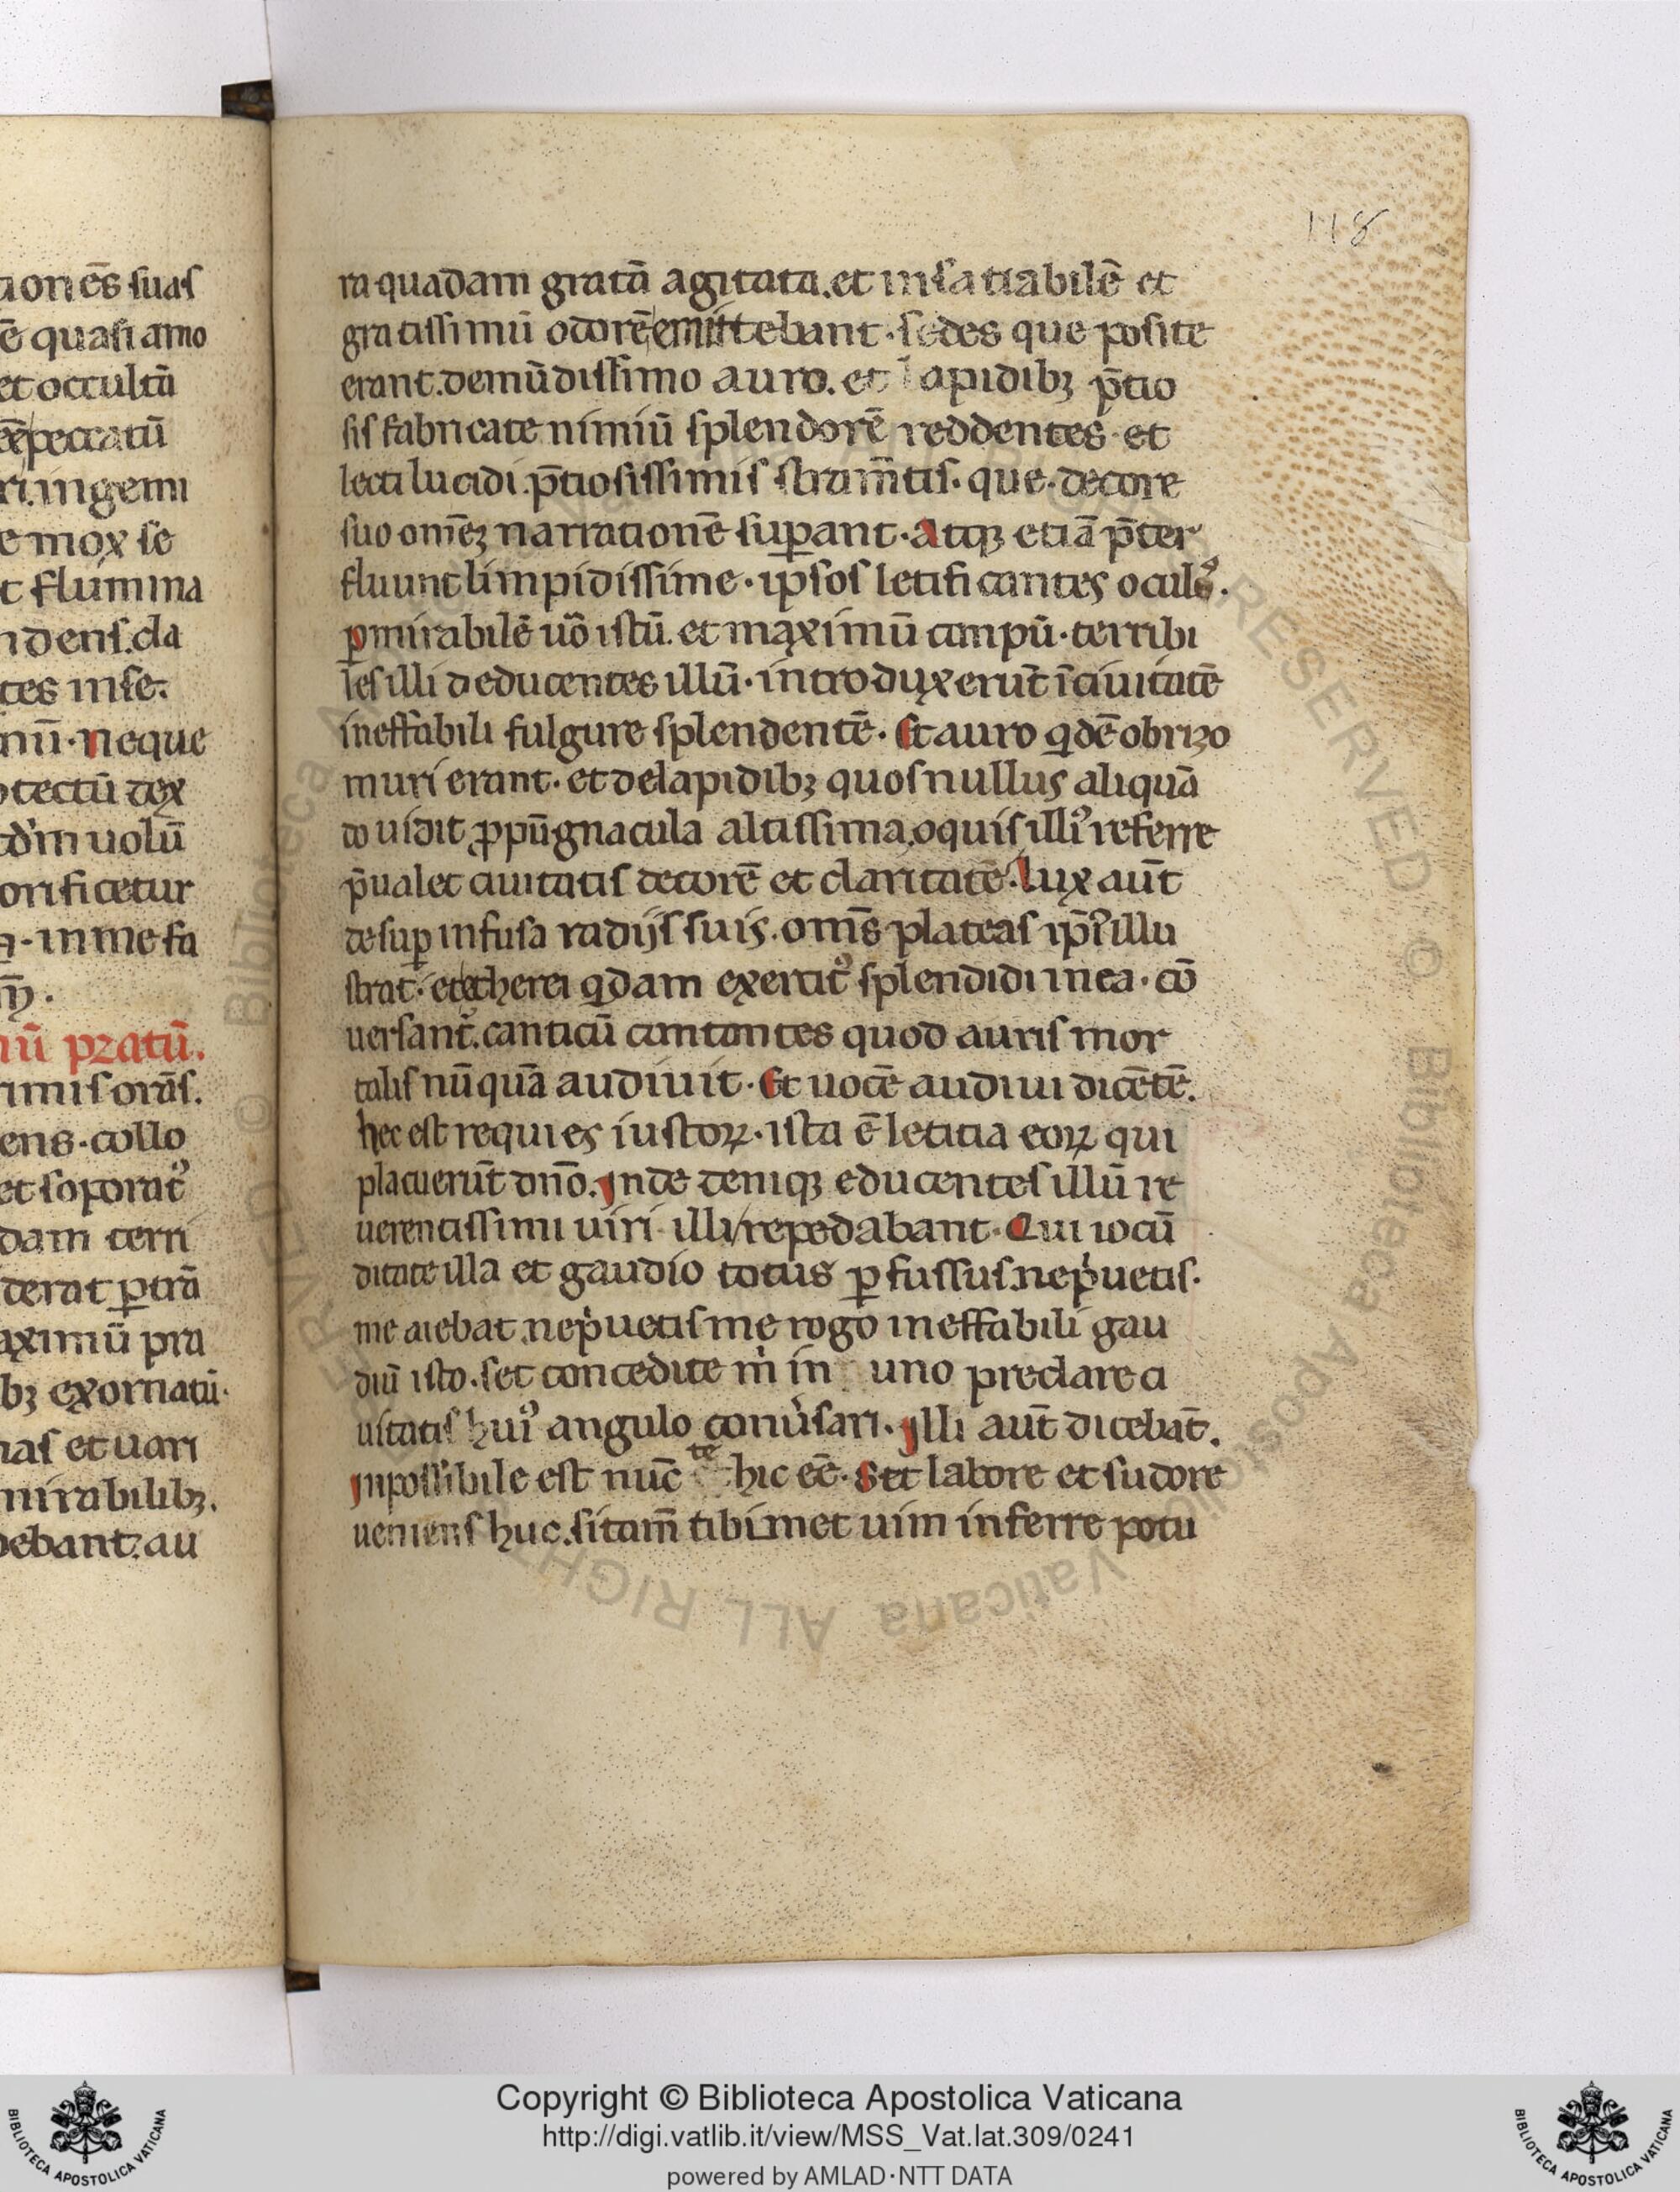 ra quadam gratā agitata. et insatiabilē et
gratissimū odorē emittebant. sedes que posite
erant. de mūdissimo auro. et lapidibꝫ p̄tio
sis fabricate nimiū splendorē reddentes. et
lecti lucidi. p̄tiosissimis stram̄tis. que. decore
suo om̄eꝫ narrationē suꝑant. Atqꝫ etiā p̄ter
fluunt limpidissime. ipsos letificantes oculꝰ.
ꝑmirabilē uō istū. et maximū campū. terribi
les illi deducentes illū. introduxerūt ī ciuitatē
ineffabili fulgure splendentē. Et auro qͥdē obrizo
muri erant. et de lapidibꝫ quos nullus aliquā
do uidit ꝓpūgnacula altissima. o quis illiꝰ referre
p̄ualet ciuitatis decorē et claritatē. Lux aūt
desuꝑ infusa radijs suis. om̄s plateas ipꝰ illu
strat. et etherei qͥdam exercitꝰ splendidi in ea. cō
uersant᷑. canticū cantantes quod auris mor
talis nūquā audiuit. Et uocē audiui dicētē.
hec est requies iustoꝝ. ista ē letitia eoꝝ qui
placuerūt dn̄o. Inde deniqꝫ educentes illū re
uerentissimi uiri illi repedabant. Qui iocū
ditate illa et gaudio totus ꝑfussus. ne pͥuetis.
me aiebat. ne pͥuetis me rogo ineffabili gau
diū isto. set concedite mͥ in uno preclare ci
uitatis huiꝰ angulo conu͛sari. Illi aūt dicebāt.
Inpossibile est nūc te hic eē. Set labore et sudore
ueniens huc. si tam̄ tibimet uim inferre potu
118
ionēs suas
ē quasi amo
et occultū
peccatū
ri. ingemi
e mox se
t flumina
ndens. cla
tes in se.
nū. Neque
tectū tex
uolū
orificetur
in me fa
nū pratū.
imis orās.
ens. collo
et soporatꝰ
dam terri
derat ꝑ trā
aximū pra
bꝫ exornatū.
nas et uari
mirabilibꝫ.
debant. au
Copyright © Biblioteca Apostolica Vaticana
http://digi.vatlib.it/view/MSS_Vat.lat.309/0241
powered by AMLAD·NTT DATA
BIBLIOTECA APOSTOLICA VATICANA
BIBLIOTECA APOSTOLICA VATICANA